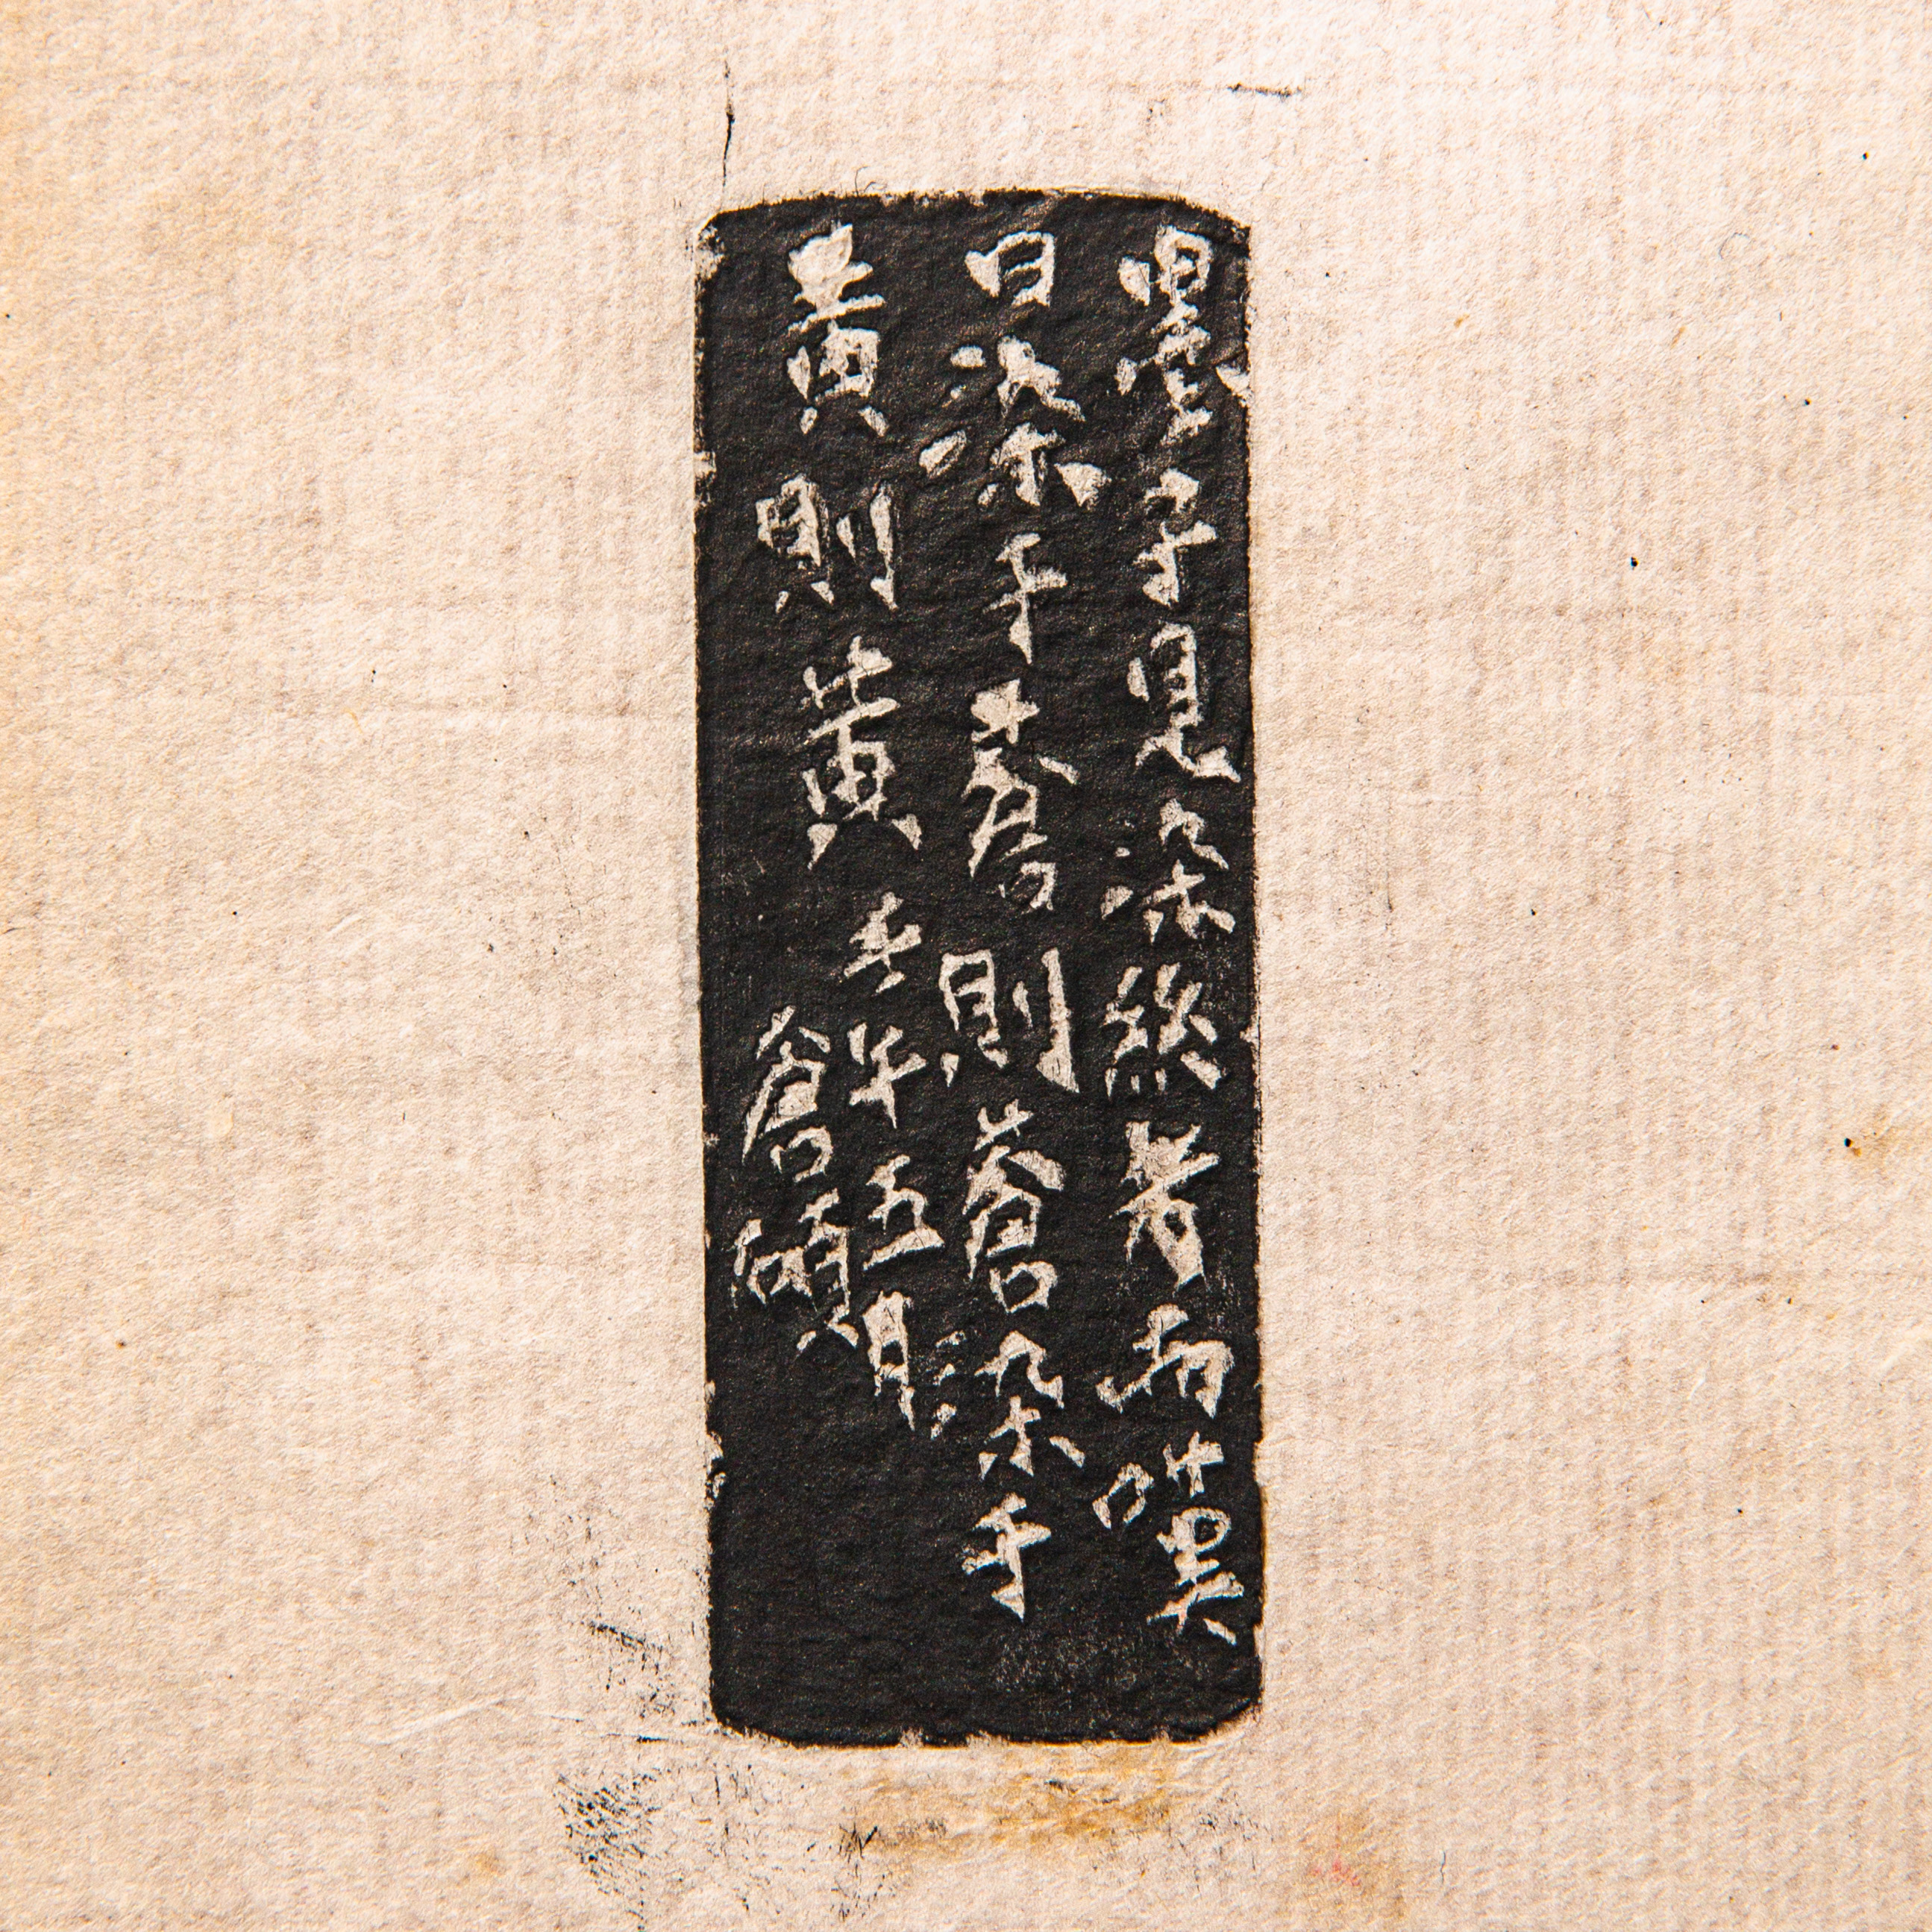 墨子見染絲者而嘆
曰染于蒼則蒼染于
黃則黃
午五月
倉碩